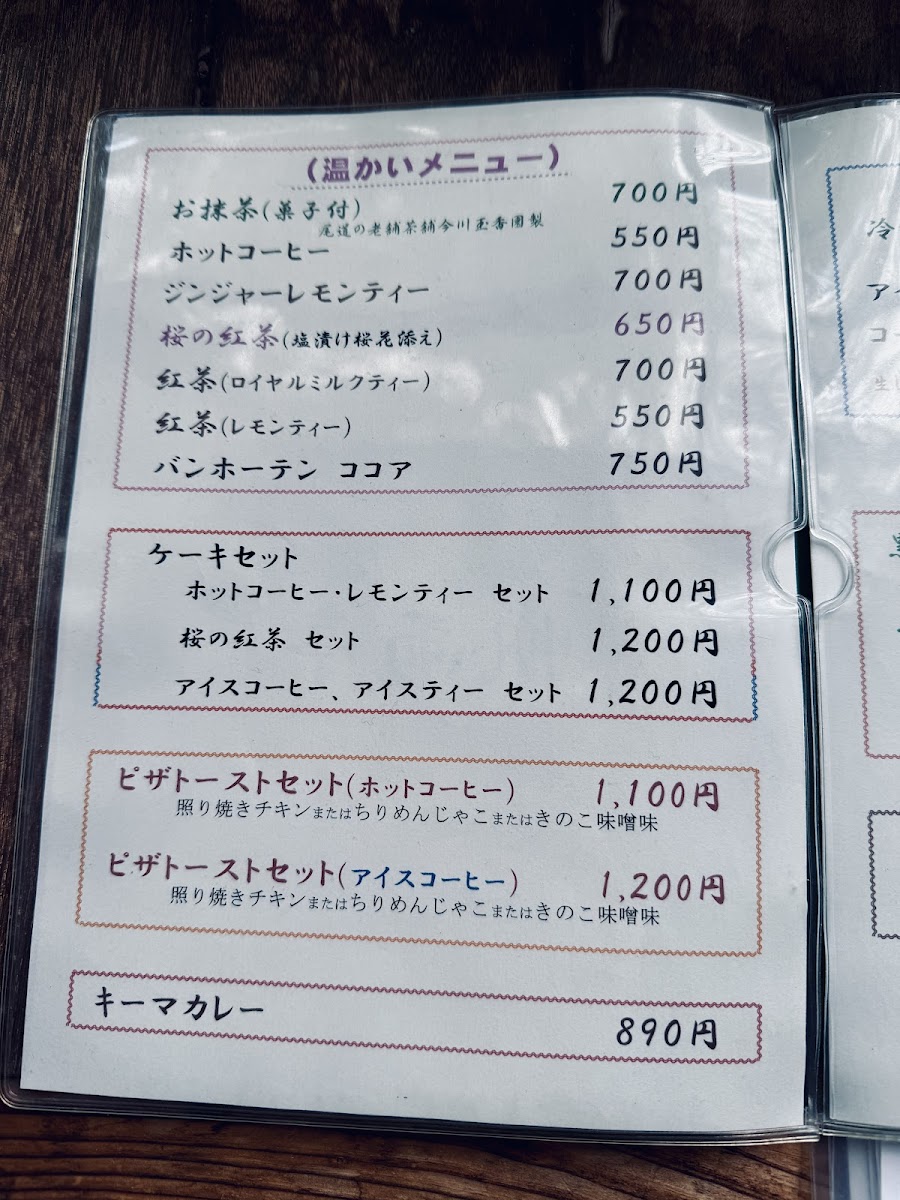 (温かいメニュー)
お抹茶(菓子付) 700円
尾道の老舗茶舗今川玉香園製
ホットコーヒー 550円
ジンジャーレモンティー 700円
桜の紅茶(塩漬け桜花添え) 650円
紅茶(ロイヤルミルクティー) 700円
紅茶(レモンティー) 550円
バンホーテン ココア 750円
ケーキセット
ホットコーヒー・レモンティー セット 1,100円
桜の紅茶 セット 1,200円
アイスコーヒー、アイスティー セット 1,200円
ピザトーストセット(ホットコーヒー) 1,100円
照り焼きチキンまたはちりめんじゃこまたはきのこ味噌味
ピザトーストセット(アイスコーヒー) 1,200円
照り焼きチキンまたはちりめんじゃこまたはきのこ味噌味
キーマカレー 890円
冷
アイ
コー
生